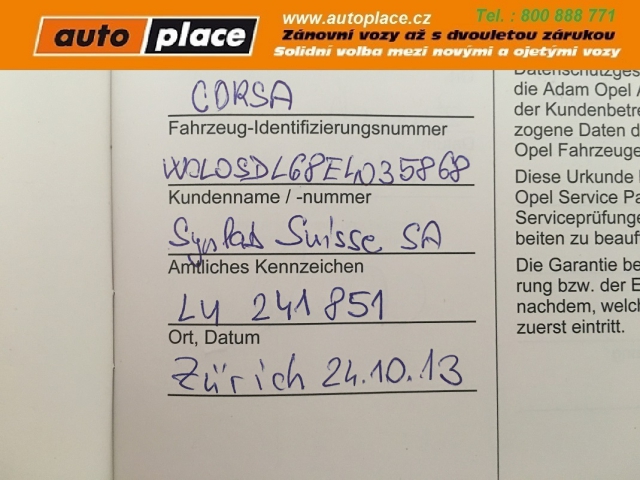 auto place
www.autoplace.cz
Tel. : 800 888 771
Zánovní vozy až s dvouletou zárukou
Solidní volba mezi novými a ojetými vozy
CORSA
Fahrzeug-Identifizierungsnummer
W0L0SDL68E4035868
Kundenname / -nummer
Suisse SA
Amtliches Kennzeichen
LU 241 851
Ort, Datum
Zürich 24.10.13
Datenschutzges
die Adam Opel A
der Kundenbetre
zogene Daten d
Opel Fahrzeuge
Diese Urkunde
Opel Service Pa
Serviceprüfunge
beiten zu beauf
Die Garantie be
rung bzw. der E
nachdem, welch
zuerst eintritt.